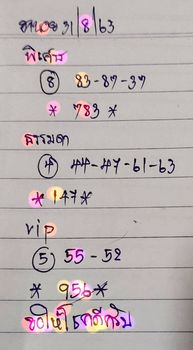 ฮานอย 31/8/63
พิเศษ
(8) 83-87-37
* 783 *
ธรรมดา
(4) 44-47-61-63
* 147 *
vip
(5) 55-52
* 956 *
ขอให้โชคดีครับ